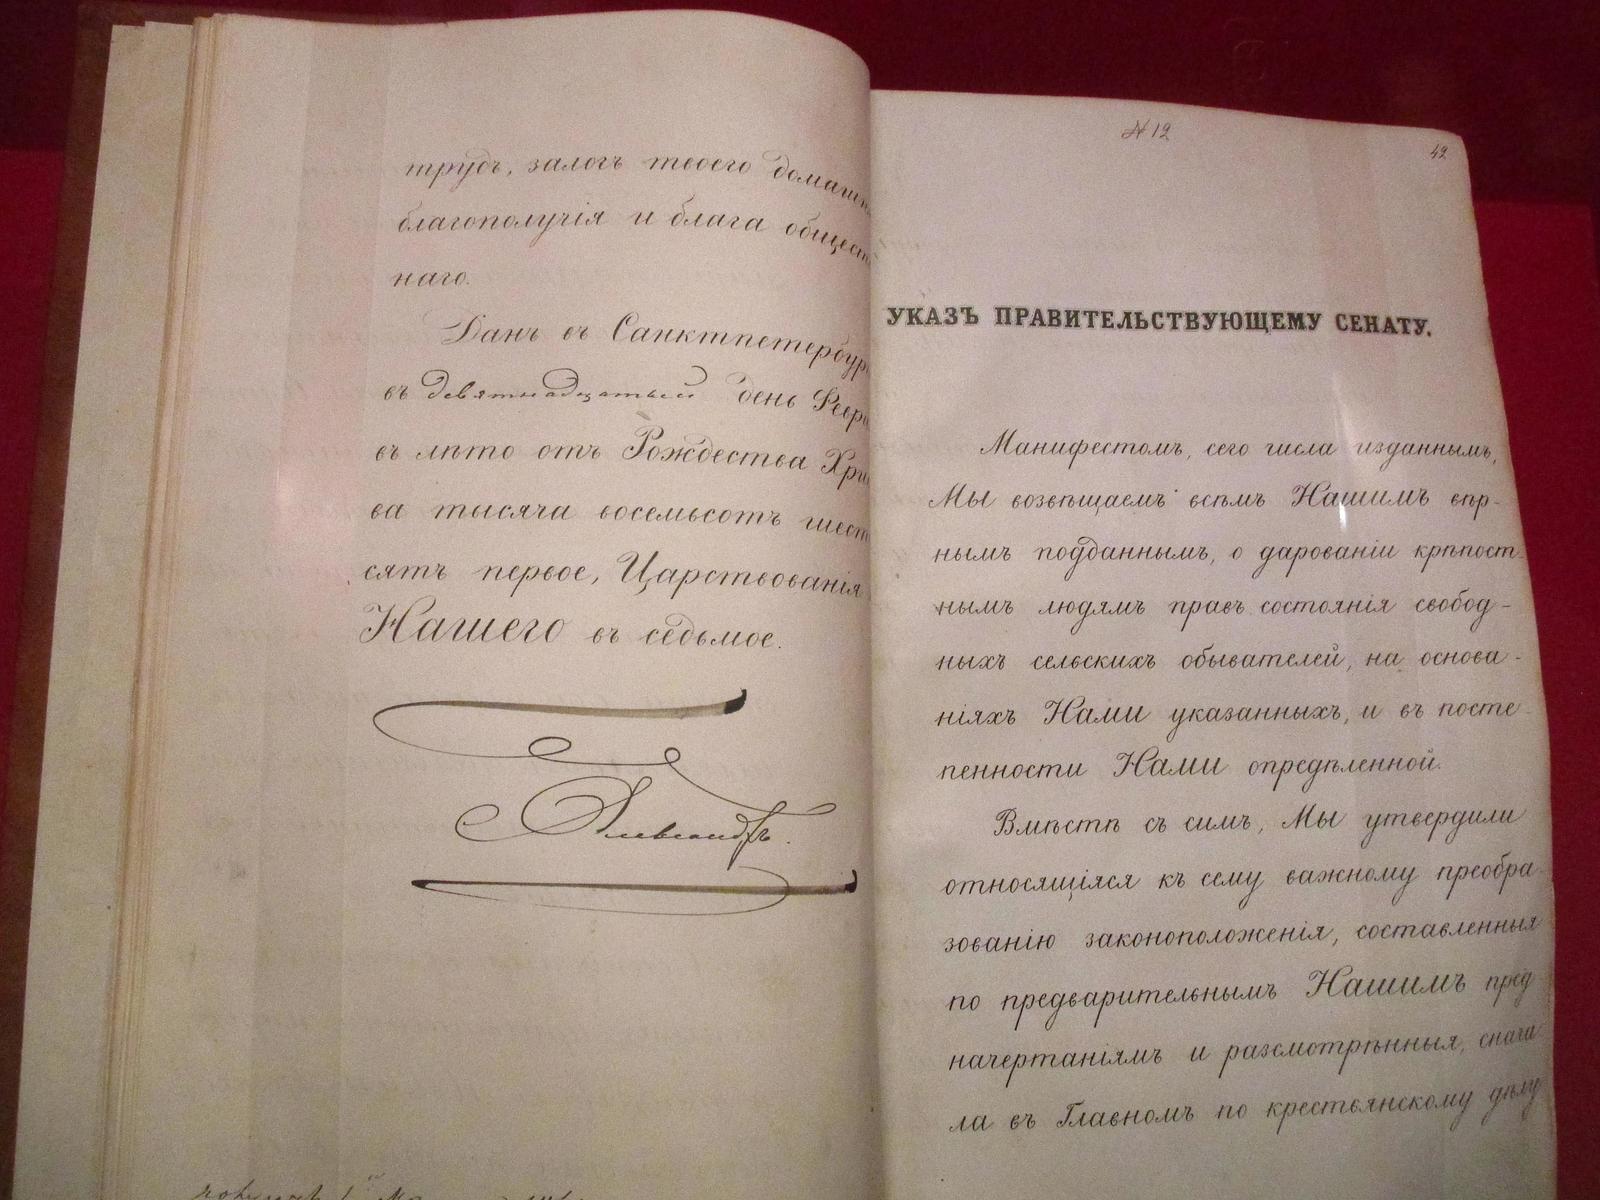 трудъ, залогъ твоего домашн
благополучія и блага общест
наго.
Данъ въ Санктпетербур
въ девятнадцатый день Февра
въ лѣто отъ Рождества Хри
ва тысяча восемьсотъ шест
сятъ первое, Царствованія
Нашего въ седьмое.
Александръ.
N 12
42
УКАЗЪ ПРАВИТЕЛЬСТВУЮЩЕМУ СЕНАТУ.
Манифестомъ, сего числа изданнымъ,
Мы возвѣщаемъ всѣмъ Нашимъ вѣр-
нымъ подданнымъ, о дарованіи крѣпост-
нымъ людямъ правъ состоянія свобод-
ныхъ сельскихъ обывателей, на основа-
ніяхъ Нами указанныхъ, и въ посте-
пенности Нами опредѣленной.
Вмѣстѣ съ симъ, Мы утвердили
относящіяся къ сему важному преобра-
зованію законоположенія, составленныя
по предварительнымъ Нашимъ пред
начертаніямъ и разсмотрѣнныя, снача
ла въ Главномъ по крестьянскому дѣлу